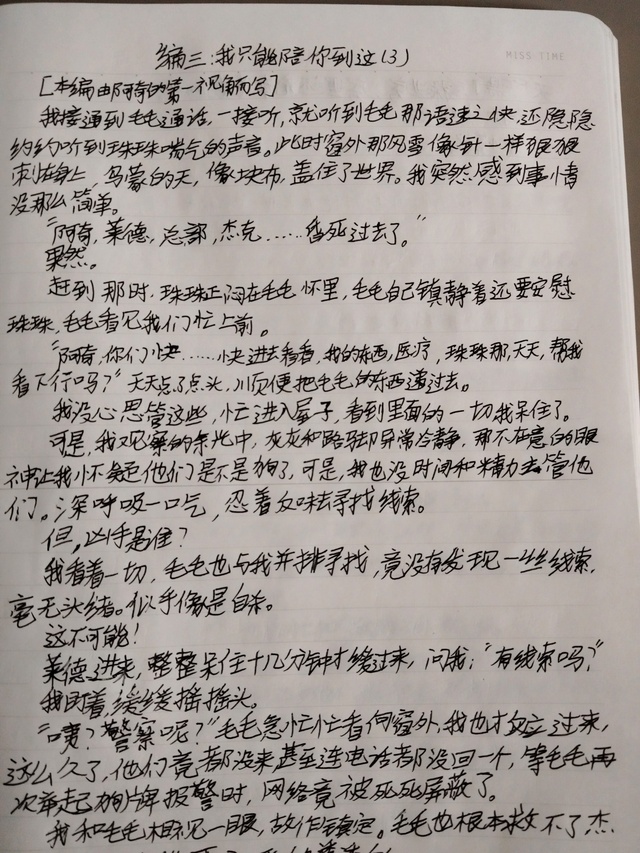 MISS TIME
编三:我只能陪你到这(3)
[本编由阿奇的第一视角而写]
我接通到毛毛通话,一接听,就听到毛毛那语速之快,还隐隐
约约听到珠珠喘气的声音。此时窗外那风雪像针一样狠狠
刺在身上,乌蒙的天,像块布,盖住了世界。我突然感到事情
没那么简单。
"阿奇,莱德,总部,杰克……昏死过去了。"
果然。
赶到那时,珠珠正闷在毛毛怀里,毛毛自己镇静着还要安慰
珠珠,毛毛看见我们忙上前。
"阿奇,你们快……快进去看看,我的东西,医疗,珠珠那,天天,帮我
看下行吗?"天天点了点头,顺便把毛毛的东西递过去。
我没心思管这些,忙进入屋子,看到里面的一切我呆住了。
可是,我观察的余光中,灰灰和路马却异常冷静,那不在意的眼
神让我怀疑他们是不是狗了,可是,我也没时间和精力去管他
们。深呼吸一口气,忍着反味去寻找线索。
但,凶手是谁?
我看着一切,毛毛也与我并排寻找,竟没有发现一丝线索,
毫无头绪。似乎像是自杀。
这不可能!
莱德进来,整整呆住十几分钟才缓过来,问我:"有线索吗?"
我闭着,缓缓摇摇头。
"咦?警察呢?"毛毛急忙忙看向窗外,我也才反应过来,
这么久了,他们竟都没来甚至连电话都没回一个,等毛毛再
次举起狗牌报警时,网络竟被死死屏蔽了。
我和毛毛相视一眼,故作镇定。毛毛也根本救不了杰